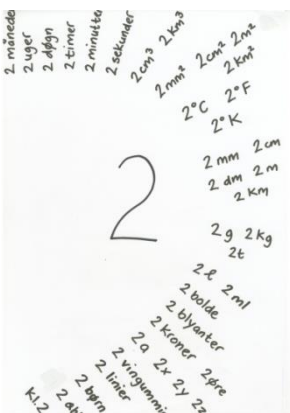 2 måneder
2 uger
2 døgn
2 timer
2 minutter
2 sekunder
2 cm³ 2 km³
2 mm² 2 cm² 2 m²
2 km²
2°C 2°F
2°K
2 mm 2 cm
2 dm 2 m
2 km
2
2 g 2 kg
2 t
2 l 2 ml
2 bolde
2 blyanter
2 kroner 2 øre
2a 2x 2y
2 vingummi
2 linier
2 børn
Kl. 2